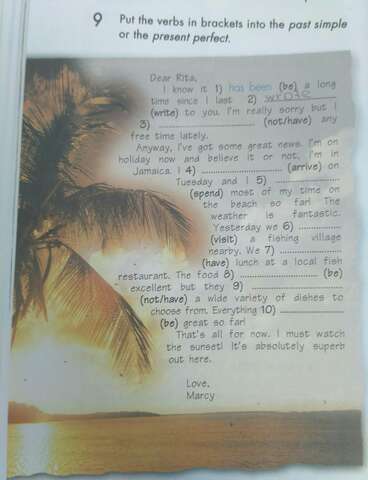 9 Put the verbs in brackets into the past simple
or the present perfect.
Dear Rita,
I know it 1) has been (be) a long
time since I last 2) wrote
(write) to you. I'm really sorry but I
3) ........................ (not/have) any
free time lately.
Anyway, I've got some great news. I'm on
holiday now and believe it or not, I'm in
Jamaica. I 4) ........................ (arrive) on
Tuesday and I 5) ........................
(spend) most of my time on
the beach so far! The
weather is fantastic.
Yesterday we 6) ........................
(visit) a fishing village
nearby. We 7) ........................
(have) lunch at a local fish
restaurant. The food 8) ........................ (be)
excellent but they 9) ........................
(not/have) a wide variety of dishes to
choose from. Everything 10) ........................
(be) great so far!
That's all for now. I must watch
the sunset! It's absolutely superb
out here.
Love,
Marcy